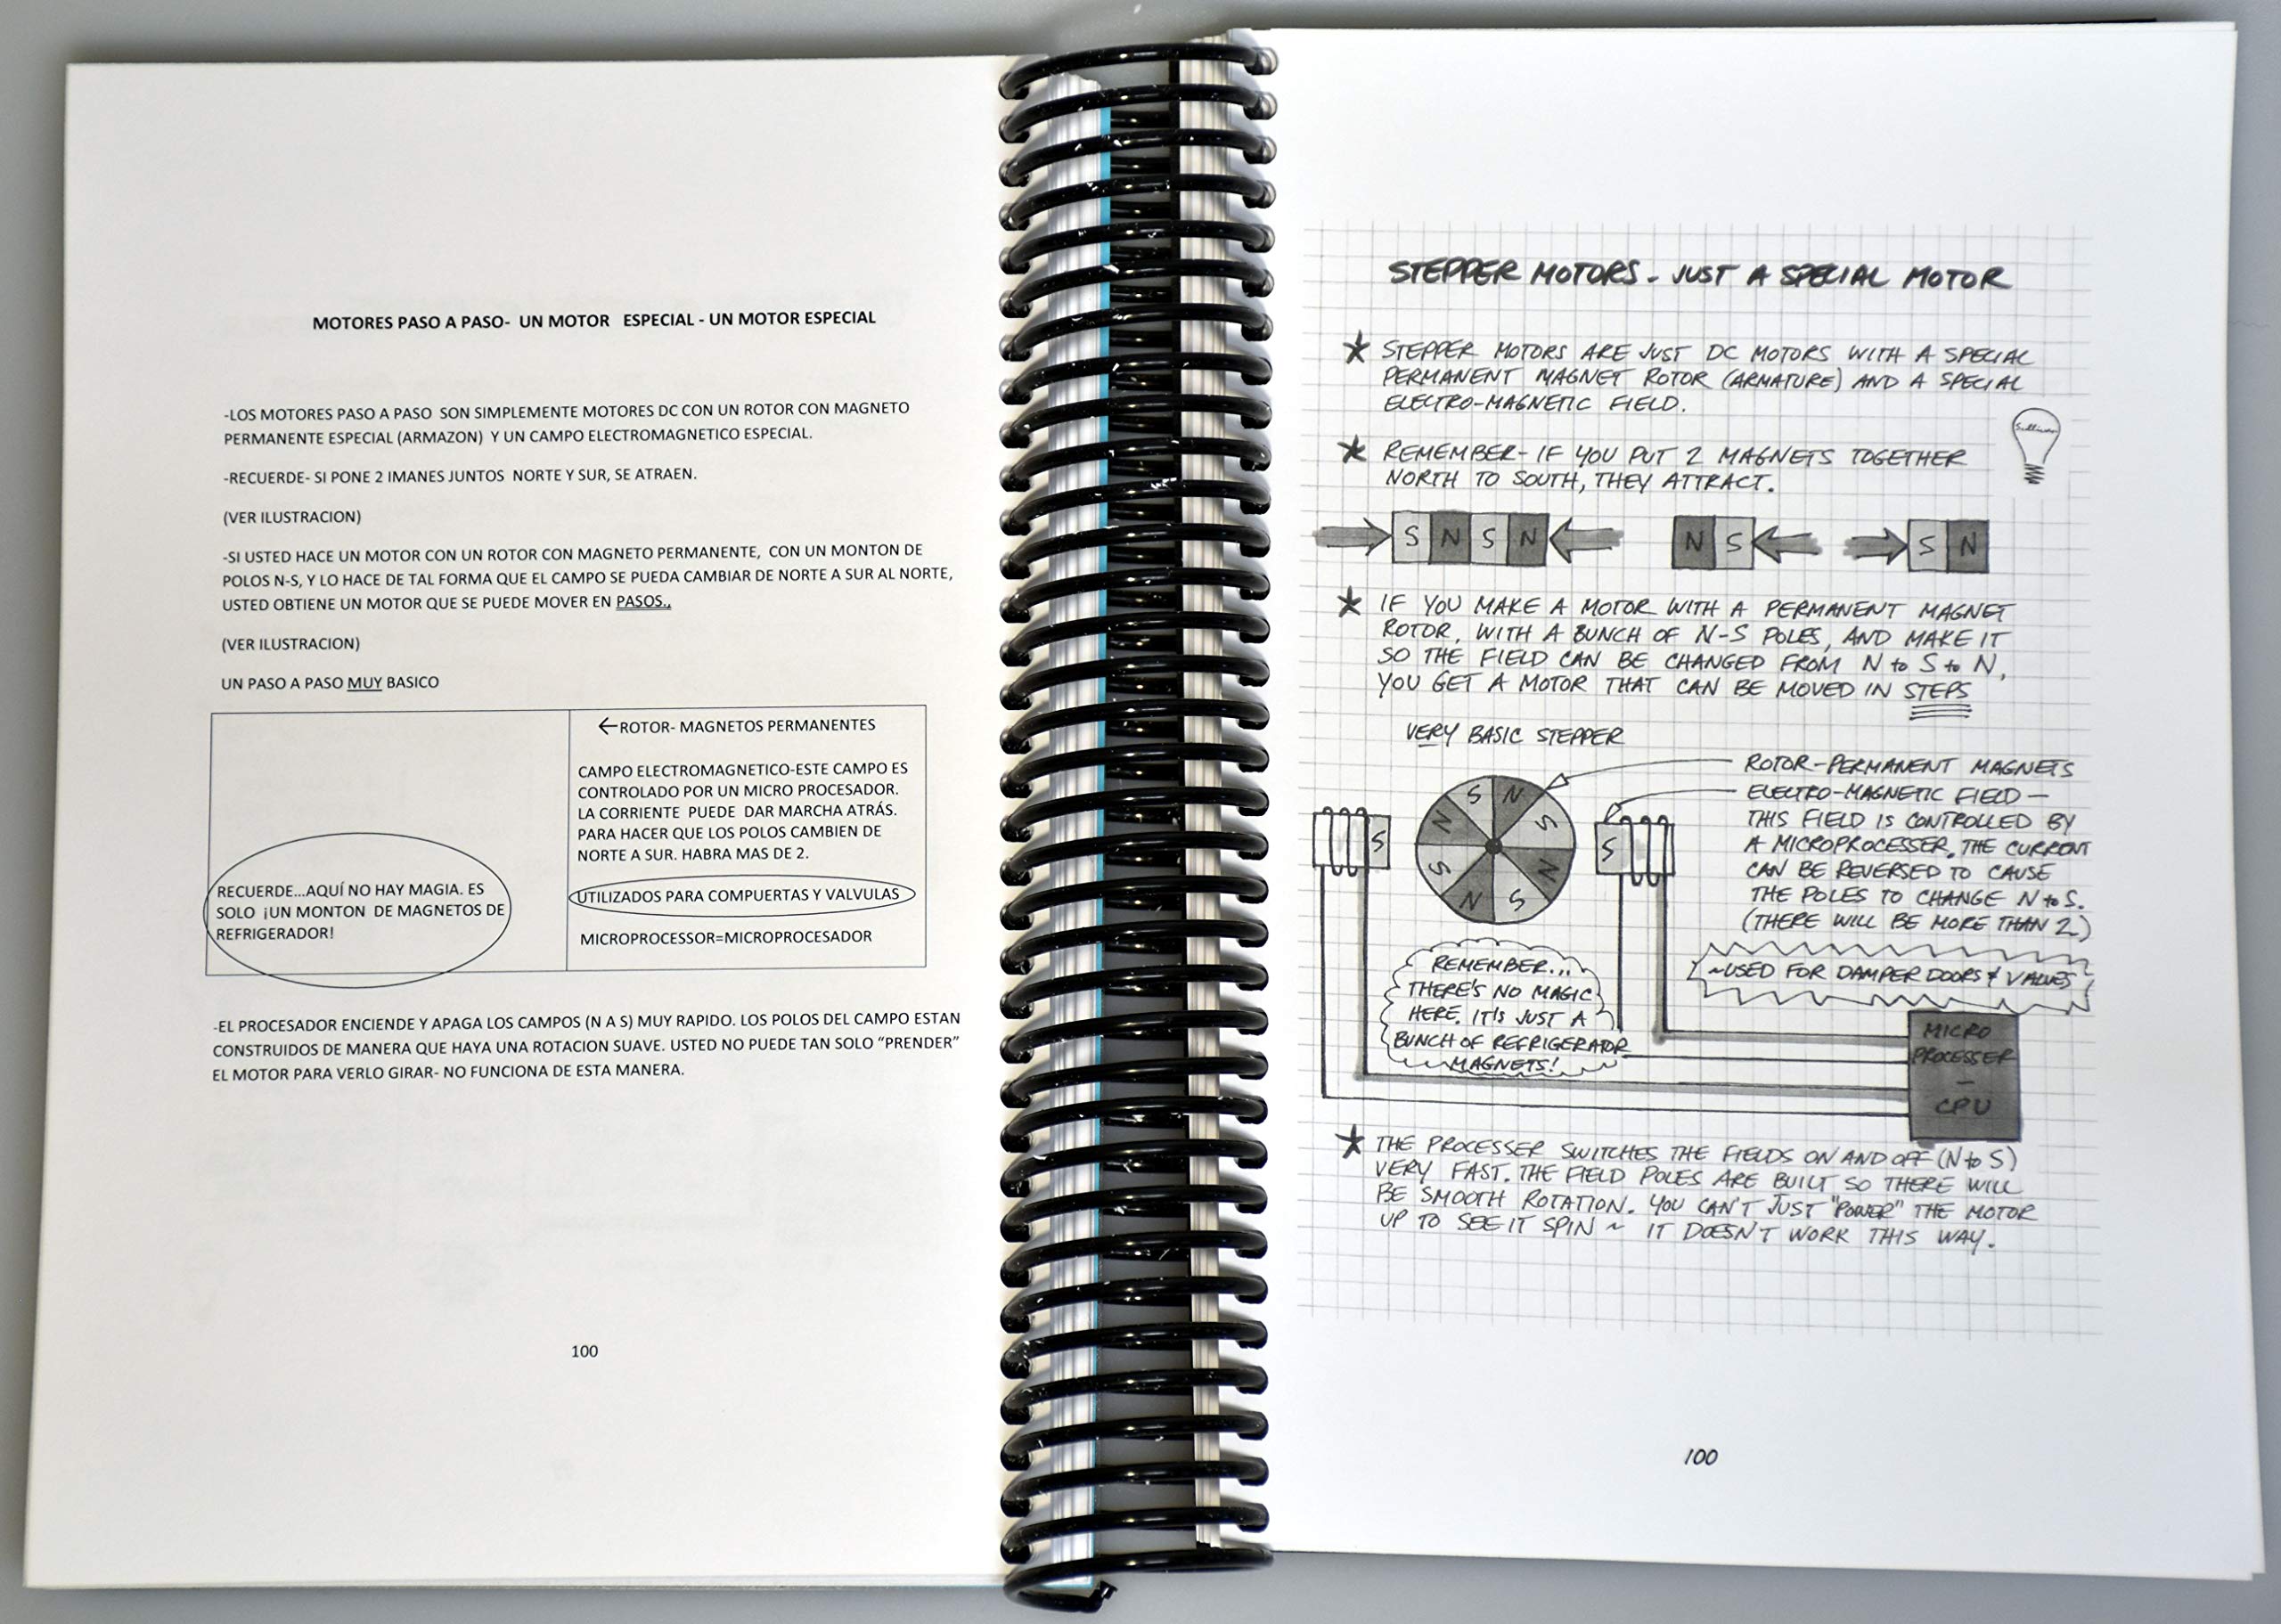 MOTORES PASO A PASO- UN MOTOR ESPECIAL - UN MOTOR ESPECIAL
-LOS MOTORES PASO A PASO SON SIMPLEMENTE MOTORES DC CON UN ROTOR CON MAGNETO
PERMANENTE ESPECIAL (ARMAZON) Y UN CAMPO ELECTROMAGNETICO ESPECIAL.
-RECUERDE- SI PONE 2 IMANES JUNTOS NORTE Y SUR, SE ATRAEN.
(VER ILUSTRACION)
-SI USTED HACE UN MOTOR CON UN ROTOR CON MAGNETO PERMANENTE, CON UN MONTON DE
POLOS N-S, Y LO HACE DE TAL FORMA QUE EL CAMPO SE PUEDA CAMBIAR DE NORTE A SUR AL NORTE,
USTED OBTIENE UN MOTOR QUE SE PUEDE MOVER EN PASOS.,
(VER ILUSTRACION)
UN PASO A PASO MUY BASICO
←ROTOR- MAGNETOS PERMANENTES
CAMPO ELECTROMAGNETICO-ESTE CAMPO ES
CONTROLADO POR UN MICRO PROCESADOR.
LA CORRIENTE PUEDE DAR MARCHA ATRÁS.
PARA HACER QUE LOS POLOS CAMBIEN DE
NORTE A SUR. HABRA MAS DE 2.
UTILIZADOS PARA COMPUERTAS Y VALVULAS
MICROPROCESSOR=MICROPROCESADOR
RECUERDE...AQUÍ NO HAY MAGIA. ES
SOLO ¡UN MONTON DE MAGNETOS DE
REFRIGERADOR!
-EL PROCESADOR ENCIENDE Y APAGA LOS CAMPOS (N A S) MUY RAPIDO. LOS POLOS DEL CAMPO ESTAN
CONSTRUIDOS DE MANERA QUE HAYA UNA ROTACION SUAVE. USTED NO PUEDE TAN SOLO “PRENDER”
EL MOTOR PARA VERLO GIRAR- NO FUNCIONA DE ESTA MANERA.
100
STEPPER MOTORS - JUST A SPECIAL MOTOR
★ STEPPER MOTORS ARE JUST DC MOTORS WITH A SPECIAL
PERMANENT MAGNET ROTOR (ARMATURE) AND A SPECIAL
ELECTRO-MAGNETIC FIELD.
★ REMEMBER- IF YOU PUT 2 MAGNETS TOGETHER
NORTH TO SOUTH, THEY ATTRACT.
S N S N N S S N
★ IF YOU MAKE A MOTOR WITH A PERMANENT MAGNET
ROTOR, WITH A BUNCH OF N-S POLES, AND MAKE IT
SO THE FIELD CAN BE CHANGED FROM N to S to N,
YOU GET A MOTOR THAT CAN BE MOVED IN STEPS
VERY BASIC STEPPER
S
S N S N S N S N
S
ROTOR-PERMANENT MAGNETS
ELECTRO-MAGNETIC FIELD —
THIS FIELD IS CONTROLLED BY
A MICROPROCESSER. THE CURRENT
CAN BE REVERSED TO CAUSE
THE POLES TO CHANGE N to S.
(THERE WILL BE MORE THAN 2)
~USED FOR DAMPER DOORS & VALVES
REMEMBER...
THERE'S NO MAGIC
HERE. IT'S JUST A
BUNCH OF REFRIGERATOR
MAGNETS!
MICRO
PROCESSER
-
CPU
★ THE PROCESSER SWITCHES THE FIELDS ON AND OFF (N to S)
VERY FAST. THE FIELD POLES ARE BUILT SO THERE WILL
BE SMOOTH ROTATION. YOU CAN'T JUST "POWER" THE MOTOR
UP TO SEE IT SPIN ~ IT DOESN'T WORK THIS WAY.
100